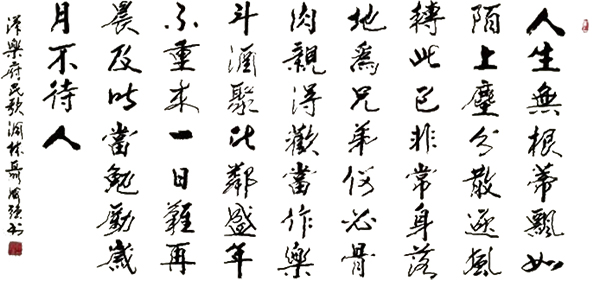 人生無根蒂飄如
陌上塵分散逐風
轉此已非常身落
地爲兄弟何必骨
肉親得歡當作樂
斗酒聚比鄰盛年
不重来一日難再
晨及时當勉勵歲
月不待人
漢樂府民歌